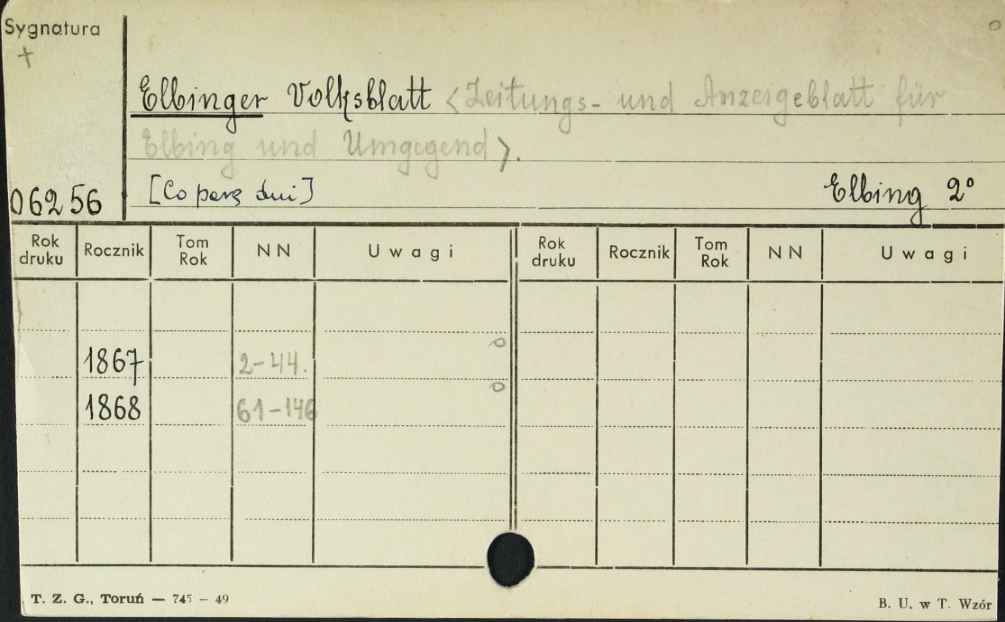 Sygnatura
+
Elbinger Volksblatt <Zeitungs- und Anzeigeblatt für
Elbing und Umgegend>.
06256
[Co parę dni] Elbing 2°
Rok druku Rocznik Tom Rok NN Uwagi Rok druku Rocznik Tom Rok NN Uwagi
1867 2-44.
1868 61-146
T. Z. G., Toruń — 745 — 49
B. U. w T. Wzór